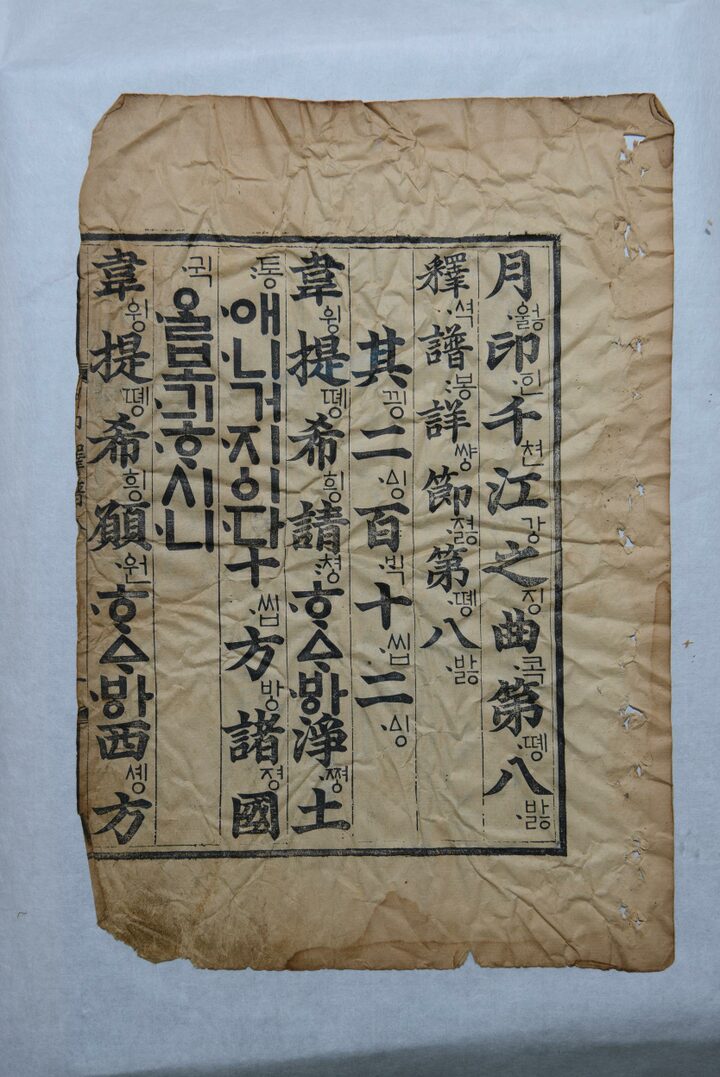 月윓印힌千쳔江강之징曲콕第똉八밣
釋셕譜봉詳썅節졇第똉八밣
其끵二싱百ᄇᆡᆨ十씹二싱
韋윙提똉希힁請쳥ᄒᆞᅀᆞᄫᅡ淨쪙土
통애니거지이다十씹方방諸졍國
귁ᄋᆞᆯ보긔ᄒᆞ시니
韋윙提똉希힁願원ᄒᆞᅀᆞᄫᅡ西솅方